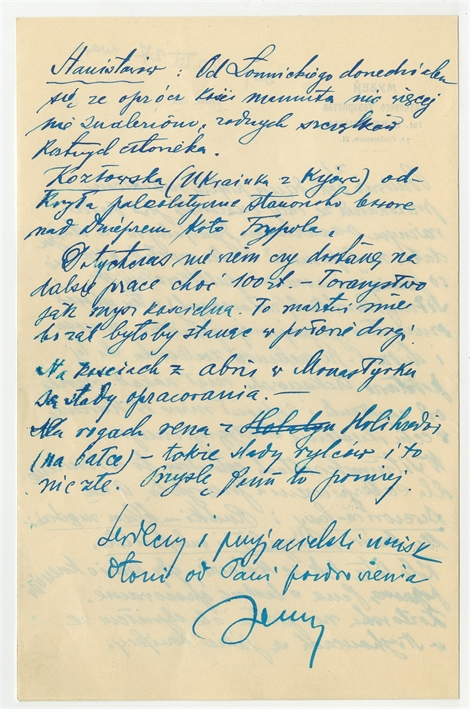 Stanisławów: Od Łomnickiego dowiedziałem
się, że oprócz kości mamuta nic więcej
nie znaleziono, żadnych szczątków
kostnych człowieka.
Kozłowska (Ukrainka z Kijowa) od-
kryła paleolityczne stanowisko lessowe
nad Dnieprem koło Trypola.
Dotychczas nie wiem czy dostanę na
dalsze prace choć 100 zł. – Towarzystwo
jak mysz kościelna. To martwi mnie
bo żal byłoby stanąć w połowie drogi.
Na kościach z abris w Monastyrku
są ślady opracowania. —
Na rogach rena z Holihrady
(na bałce) – także ślady rylców i to
nie złe. Przyślę Panu to później.
Serdeczny i przyjacielski uścisk
dłoni od Pani pozdrowienia